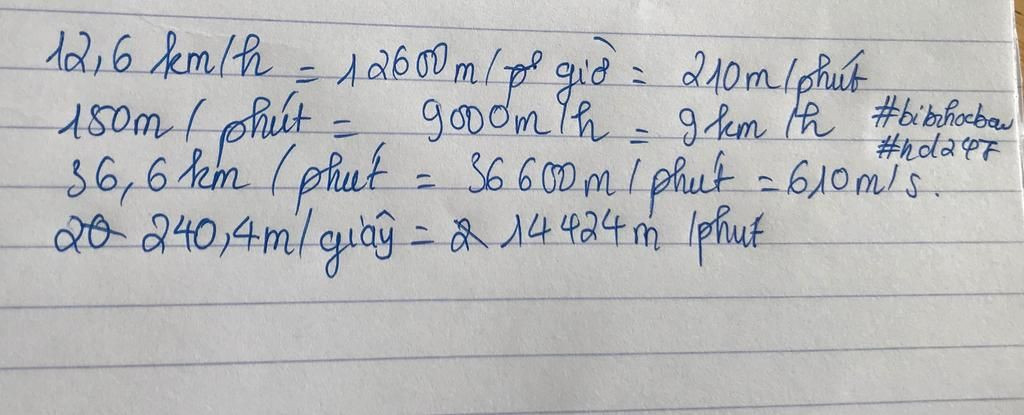 12,6 km/h = 12600m/giờ = 210m/phút
150m/ phút = 9000m/h = 9km/h
#bibihocbow
#hd247
36,6km/phút = 36600m/phút = 610m/s.
240,4m/giây = 14424m/phut